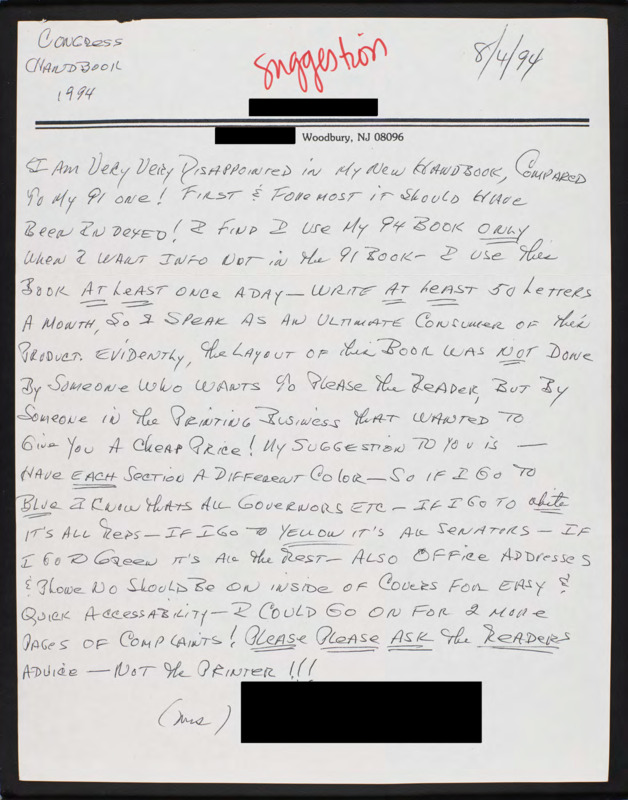 Congress
Handbook
1994
suggestion
8/4/94
Woodbury, NJ 08096
I Am Very Very Disappointed in My New Handbook, Compared
To My 91 one! First & Foremost it Should Have
Been Indexed! I Find I use My 94 Book ONLY
When I Want Info Not in the 91 Book – I use this
Book At Least once a Day – Write At Least 50 Letters
A Month, So I Speak As An Ultimate Consumer of this
Product. Evidently, the Layout of this Book Was Not Done
By Someone Who Wants To Please the Reader, But By
Someone in the Printing Business that Wanted To
Give You A Cheap Price! My Suggestion To You is –
Have Each Section A Different Color – So if I Go To
Blue I Know thats All Governors Etc – If I Go To white
it's All Reps – If I Go To Yellow it's All Senators – If
I Go To Green it's All the Rest – Also Office Addresses
& Phone No Should Be on inside of Covers For Easy &
Quick Accessability – I Could Go on For 2 More
Pages of Complaints! Please Please Ask the Readers
Advice – Not the Printer!!!
(Mrs)